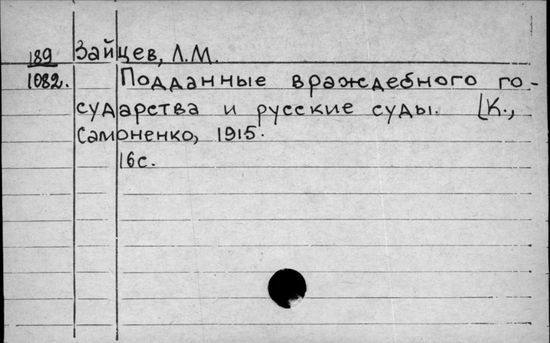 189 Зайцев, Л.М.
1082. Подданные враждебного го-
сударства и русские суды. [К.,
Самоненко, 1915.
16с.